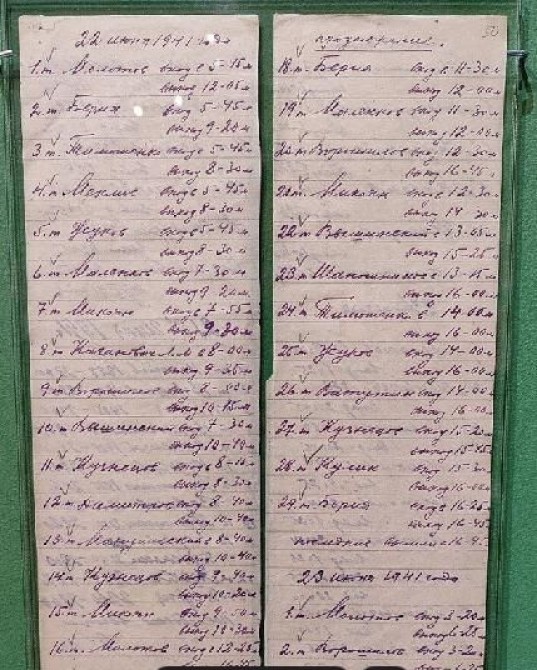 22 июня 1941 года
1. т. Молотов вход в 5-45м
выход 12-05м
2. т. Берия вход 5-45м
выход 9-20м
3 т. Тимошенко вход в 5-45м
выход 8-30м
4. т. Мехлис вход в 5-45м
выход 8-30м
5. т. Жуков вход в 5-45м
выход 8-30м
6. т. Маленков вход 7-30м
выход 9-20м
7. т. Микоян вход в 7-55м
выход 9-30м
8. т. Каганович Л.М в 8-00м
выход 9-35м
9. т. Ворошилов вход 8-00м
выход 10-15м
10. т. Вышинский вход 7-30м
выход 10-40м
11. т. Кузнецов вход в 8-15м
выход 8-30м
12. т. Димитров вход 8-40м
выход 10-40м
13. т. Мануильский в 8-40м
выход 10-40м
14. т. Кузнецов вход 9-40м
выход 10-20м
15. т. Микоян вход 9-50м
выход 10-30м
16. т. Молотов в 12-25м
продолжение.
18. т. Берия вход в 11-30м
выход 12-00м
19. т. Маленков вход 11-30м
выход 12-00м
20. т. Ворошилов вход 12-30м
выход 16-45м
21. т. Микоян вход в 12-30м
выход 14-30м
22. т. Вышинский в 13-05м
выход 15-25м
23. т. Шапошников в 13-15м
выход 16-00м
24. т. Тимошенко в 14-00м
выход 16-00м
25. т. Жуков вход 14-00м
выход 16-00м
26. т. Ватутин вход 14-00м
выход 16-00м
27. т. Кузнецов вход 15-20м
выход 15-45м
28. т. Кулик вход 15-30м
выход 16-00м
29. т. Берия вход в 16-25м
выход 16-45м
последние вышли 16-45
23 июня 1941 года
1. т. Молотов вход 3-20м
выход 6-25м
2. т. Ворошилов вход 3-20м